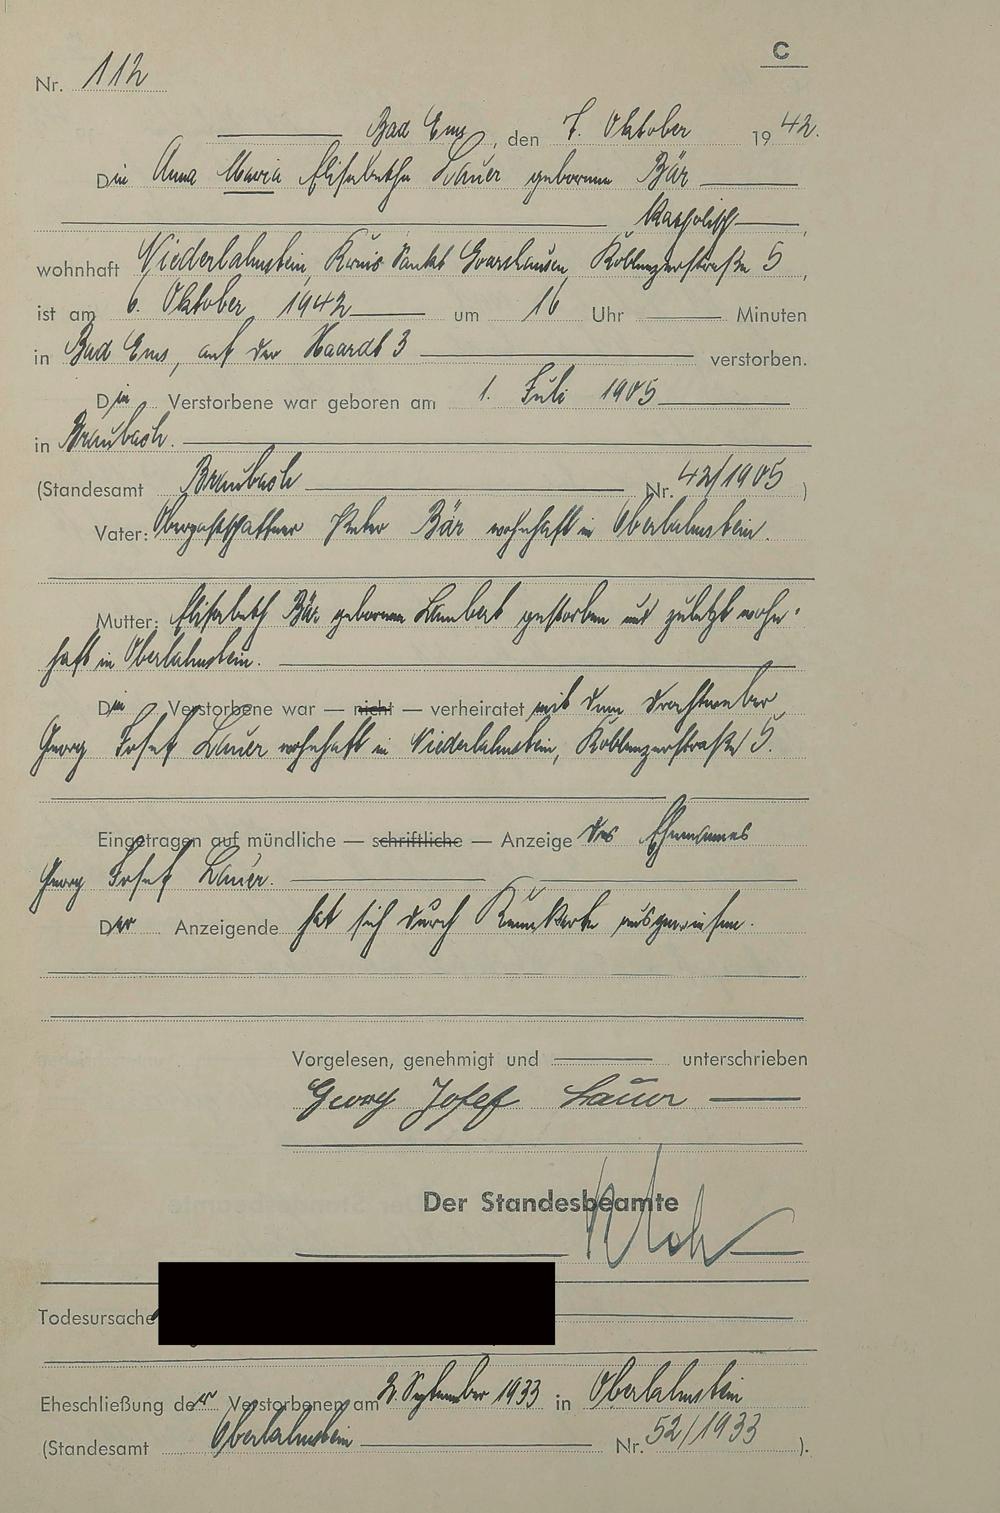 C
Nr. 112
Bad Ems, den 7. Oktober 1942.
Die Anna Maria Elisabetha Lauer geborene Bär
katholisch,
wohnhaft Niederlahnstein, Kreis Sankt Goarshausen, Koblenzerstraße 5,
ist am 6. Oktober 1942 um 16 Uhr Minuten
in Bad Ems, auf der Haardt 3 verstorben.
Die Verstorbene war geboren am 1. Juli 1905
in Braubach.
(Standesamt Braubach Nr. 42/1905)
Vater: Oberpostschaffner Peter Bär wohnhaft in Oberlahnstein.
Mutter: Elisabeth Bär geborene Lambert gestorben und zuletzt wohn-
haft in Oberlahnstein.
Die Verstorbene war — nicht — verheiratet mit dem Drahtweber
Georg Josef Lauer wohnhaft in Niederlahnstein, Koblenzerstraße 5.
Eingetragen auf mündliche — schriftliche — Anzeige des Ehemannes
Georg Josef Lauer.
Der Anzeigende hat sich durch Kennkarte ausgewiesen.
Vorgelesen, genehmigt und unterschrieben
Georg Josef Lauer
Der Standesbeamte
Todesursache
Eheschließung der Verstorbenen am 2. September 1933 in Oberlahnstein
(Standesamt Oberlahnstein Nr. 52/1933).